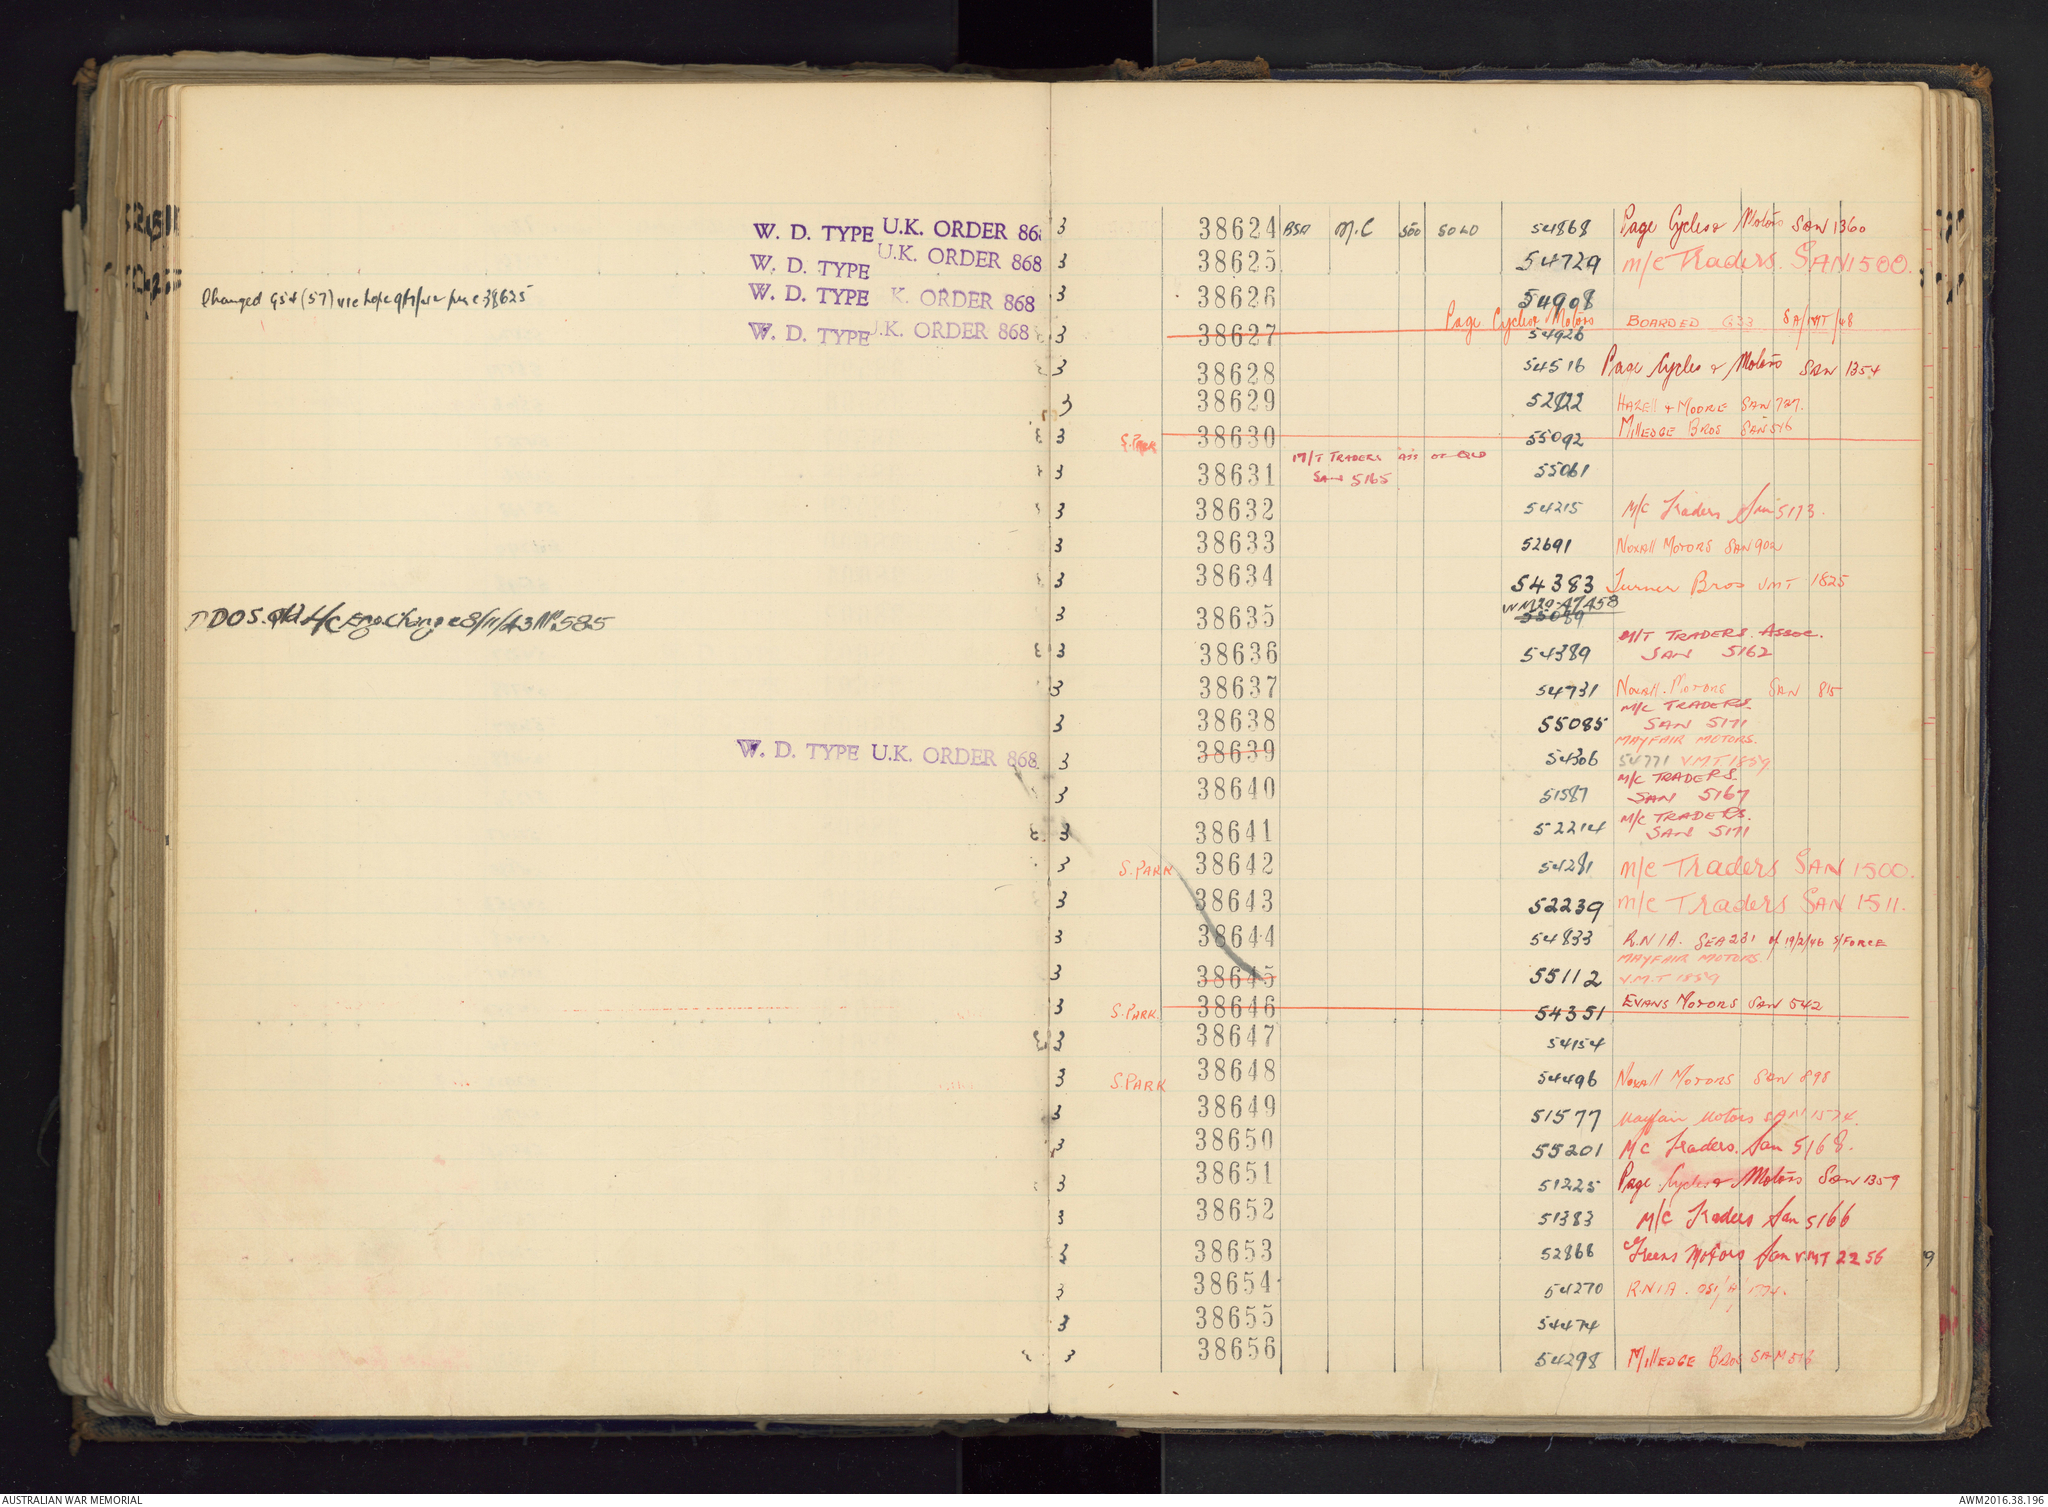 W. D. TYPE U.K. ORDER 868 3 38624 BSA M.C 500 SOLD 54868 Page Cycles & Motors SAN 1360
W. D. TYPE U.K. ORDER 868 3 38625 54729 M/C Traders. SAN 1500.
Changed W. D. TYPE K. ORDER 868 3 38626 54908
W. D. TYPE U.K. ORDER 868 3 38627 Page Cycles & Motors 54926 BOARDED SA/MT/48
3 38628 54516 Page Cycles & Motors SAN 1354
3 38629 52822 HAZELL & MOORE SAN 727.
S.PARK 3 38630 55092 MILLEDGE BROS SAN 516
3 38631 M/T TRADERS ASS OF QLD SAN 5165 55061
3 38632 54215 M/C Traders San 5173.
3 38633 52691 NOXALL MOTORS SAN 902
3 38634 54383 Turner Bros VMT 1825
DDOS. Qld L/C Eng. Change 8/11/43 No 585 3 38635 WM20-47458 55089
3 38636 54389 M/T TRADERS. ASSOC. SAN 5162
3 38637 54731 NOXALL. MOTORS SAN 815
3 38638 55085 M/C TRADERS. SAN 5171
W. D. TYPE U.K. ORDER 868 3 38639 54306 MAYFAIR MOTORS. 54771 V.M.T 1859
3 38640 51587 M/C TRADERS. SAN 5167
3 38641 52214 M/C TRADERS. SAN 5171
3 S.PARK 38642 54281 M/C Traders SAN 1500.
3 38643 52239 M/C Traders SAN 1511.
3 38644 54833 R.N.I.A. SEA 231 of 19/2/46 S/FORCE
3 38645 55112 MAYFAIR MOTORS. V.M.T 1859
3 S.PARK. 38646 54351 EVANS MOTORS SAN 542
3 38647 54154
3 S.PARK 38648 54496 NOXALL MOTORS SAN 898
3 38649 51577 Mayfair Motors SAN 1574.
3 38650 55201 M C Traders. San 5168.
3 38651 51225 Page Cycles & Motors SAN 1359
3 38652 51383 M/C Traders San 5166
3 38653 52868 Greens Motors San V.MT 2256
3 38654 54270 R.N.I.A.
3 38655 54474
3 38656 54298 MILLEDGE BROS SAN 516
AUSTRALIAN WAR MEMORIAL AWM2016.38.196